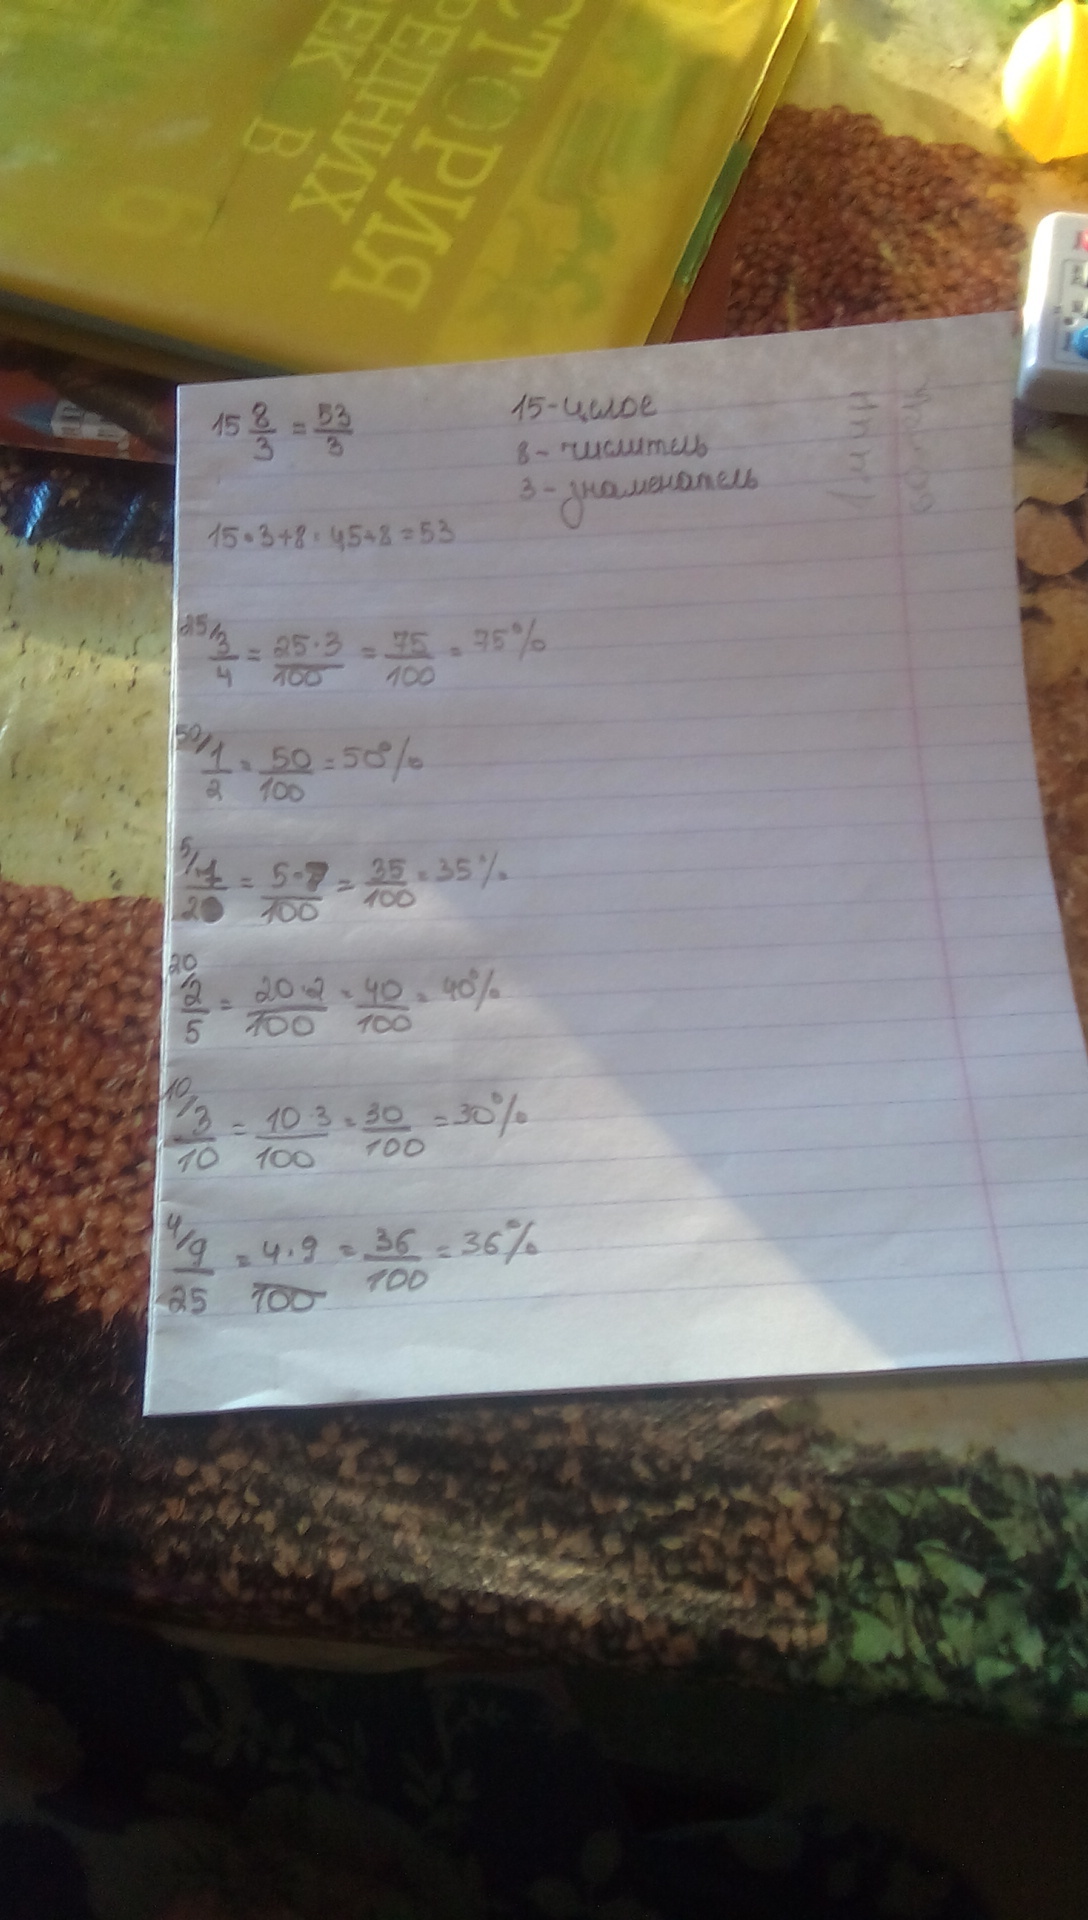 ИСТОРИЯ
СРЕДНИХ
ВЕКОВ
6
15 8/3 = 53/3
15-целое
8- числитель
3- знаменатель
1 мин
60 сек
15·3+8=45+8=53
25/ 3/4 = 25·3/100 = 75/100 = 75%
50/ 1/2 = 50/100 = 50%
5/ 7/20 = 5·7/100 = 35/100 = 35%
20 2/5 = 20·2/100 = 40/100 = 40%
10/ 3/10 = 10·3/100 = 30/100 = 30%
4/ 9/25 = 4·9/100 = 36/100 = 36%